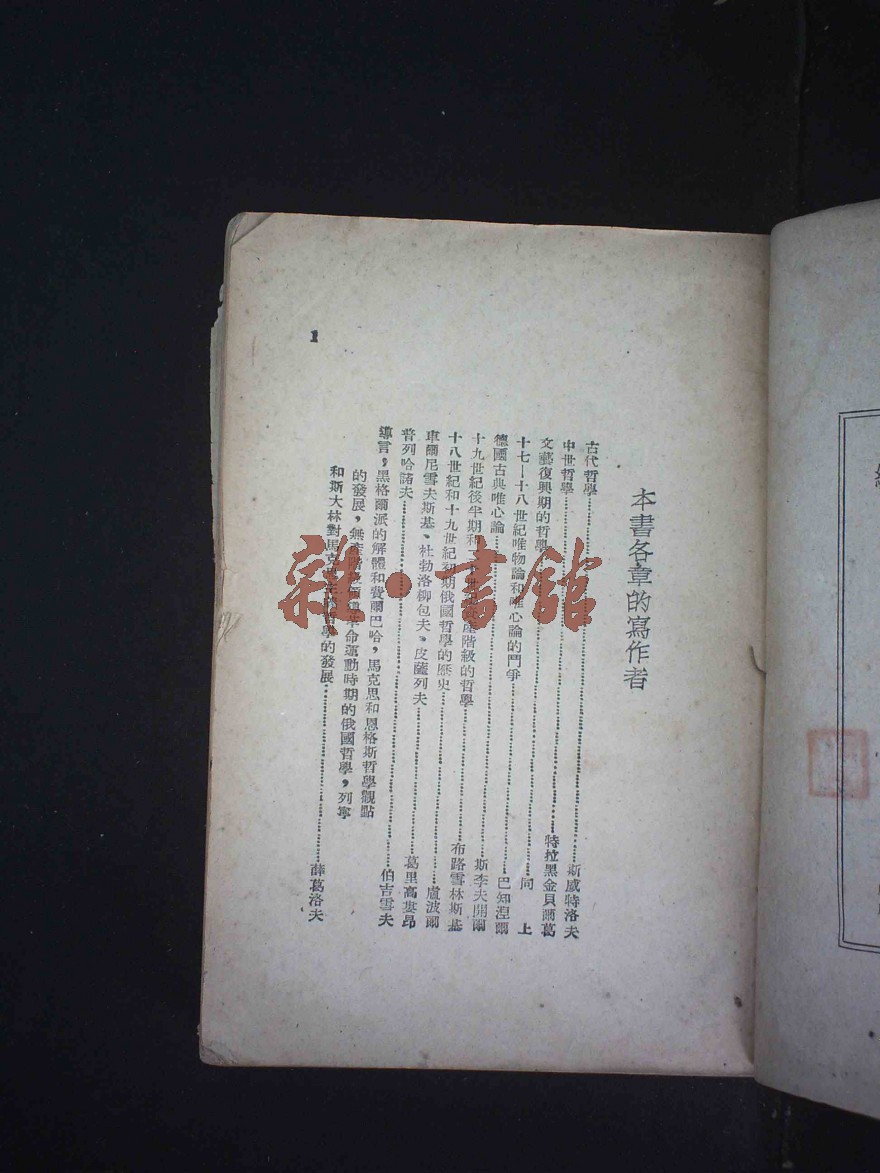 本書各章的寫作者
古代哲學……斯威特洛夫
中世哲學……特拉黑金貝爾葛
文藝復興期的哲學……同 上
十七—十八世紀唯物論和唯心論的鬥爭……巴知涅爾
德國古典唯心論……斯李夫開爾
十九世紀後半期和二十世紀資產階級的哲學……布路雪林斯基
十八世紀和十九世紀初期俄國哲學的歷史……盧波爾
車爾尼雪夫斯基、杜勃洛柳包夫、皮薩列夫……葛里高婁昂
普列哈諾夫……伯吉雪夫
導言,黑格爾派的解體和費爾巴哈,馬克思和恩格斯哲學觀點
的發展,無產階級領導革命運動時期的俄國哲學,列寧
和斯大林對馬克思主義哲學的發展……薛葛洛夫
1
雜·書館